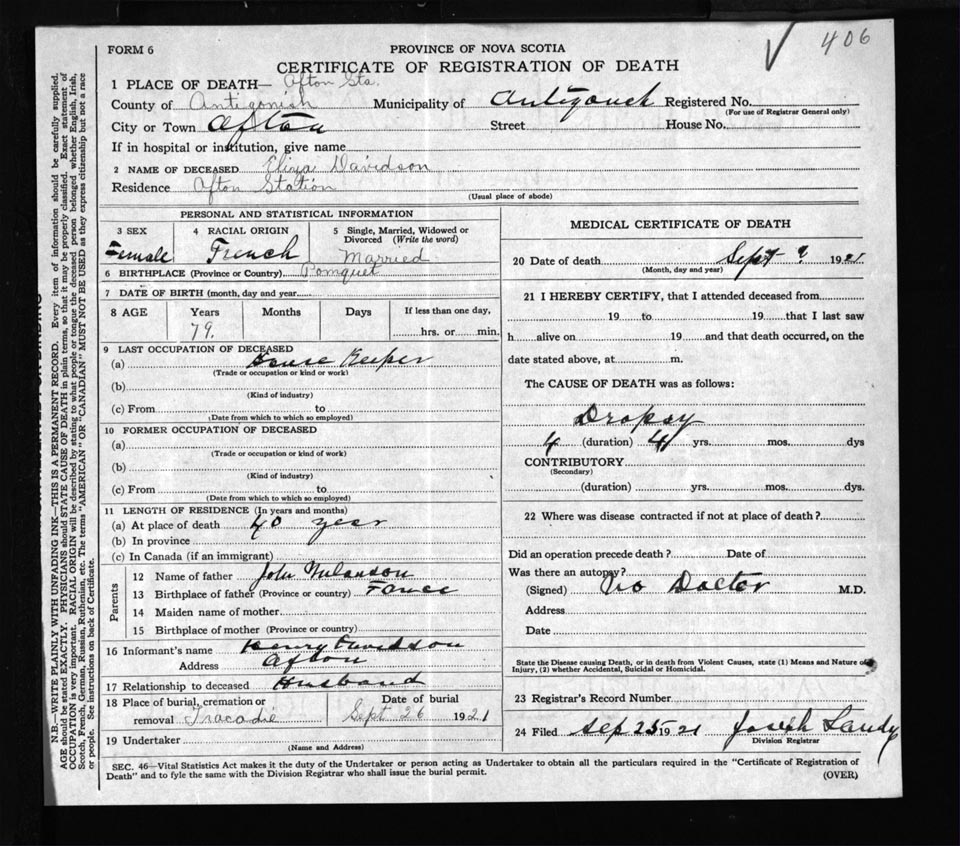 406
FORM 6
PROVINCE OF NOVA SCOTIA
CERTIFICATE OF REGISTRATION OF DEATH
1 PLACE OF DEATH— Afton Sta.
County of Antigonish Municipality of Antigonish Registered No.
(For use of Registrar General only)
City or Town Afton Street House No.
If in hospital or institution, give name
2 NAME OF DECEASED Eliza Davidson
Residence Afton Station
(Usual place of abode)
PERSONAL AND STATISTICAL INFORMATION
3 SEX 4 RACIAL ORIGIN 5 Single, Married, Widowed or
Divorced (Write the word)
Female French Married
6 BIRTHPLACE (Province or Country) Pomquet
7 DATE OF BIRTH (month, day and year
8 AGE Years Months Days If less than one day,
79. hrs. or min.
9 LAST OCCUPATION OF DECEASED
(a) House Keeper
(Trade or occupation or kind or work)
(b)
(Kind of industry)
(c) From to
(Date from which to which so employed)
10 FORMER OCCUPATION OF DECEASED
(a)
(Trade or occupation or kind of work)
(b)
(Kind of industry)
(c) From to
(Date from which to which so employed)
11 LENGTH OF RESIDENCE (In years and months)
(a) At place of death 40 year
(b) In province
(c) In Canada (if an immigrant)
Parents
12 Name of father John
13 Birthplace of father (Province or country)
14 Maiden name of mother
15 Birthplace of mother (Province or country)
16 Informant's name Henry Davidson
Address Afton
17 Relationship to deceased Husband
18 Place of burial, cremation or Date of burial
removal Tracadie Sept 26 1921
19 Undertaker
(Name and Address)
MEDICAL CERTIFICATE OF DEATH
20 Date of death Sept ? 1921
(Month, day and year)
21 I HEREBY CERTIFY, that I attended deceased from
19 to 19 that I last saw
h alive on 19 and that death occurred, on the
date stated above, at m.
The CAUSE OF DEATH was as follows:
Dropsy
4 (duration) 4 yrs. mos. dys
CONTRIBUTORY
(Secondary)
(duration) yrs. mos. dys.
22 Where was disease contracted if not at place of death?
Did an operation precede death? Date of
Was there an autopsy?
(Signed) No Docter M.D.
Address
Date
State the Disease causing Death, or in death from Violent Causes, state (1) Means and Nature of
Injury, (2) whether Accidental, Suicidal or Homicidal.
23 Registrar's Record Number
24 Filed Sep 25 1921 Joseph Landry
Division Registrar
SEC. 46—Vital Statistics Act makes it the duty of the Undertaker or person acting as Undertaker to obtain all the particulars required in the "Certificate of Registration of
Death" and to fyle the same with the Division Registrar who shall issue the burial permit.
(OVER)
N.B.—WRITE PLAINLY WITH UNFADING INK—THIS IS A PERMANENT RECORD. Every item of information should be carefully supplied.
AGE should be stated EXACTLY. PHYSICIANS should STATE CAUSE OF DEATH in plain terms, so that it may be properly classified. Exact statement of
OCCUPATION is very important. RACIAL ORIGIN will be described by stating to what people or tongue the deceased person belonged whether English, Irish,
Scotch, French, German, Russian, Ruthenian, etc. The terms "AMERICAN" OR "CANADIAN" MUST NOT BE USED as they express citizenship but not a race
or people. See instructions on back of Certificate.